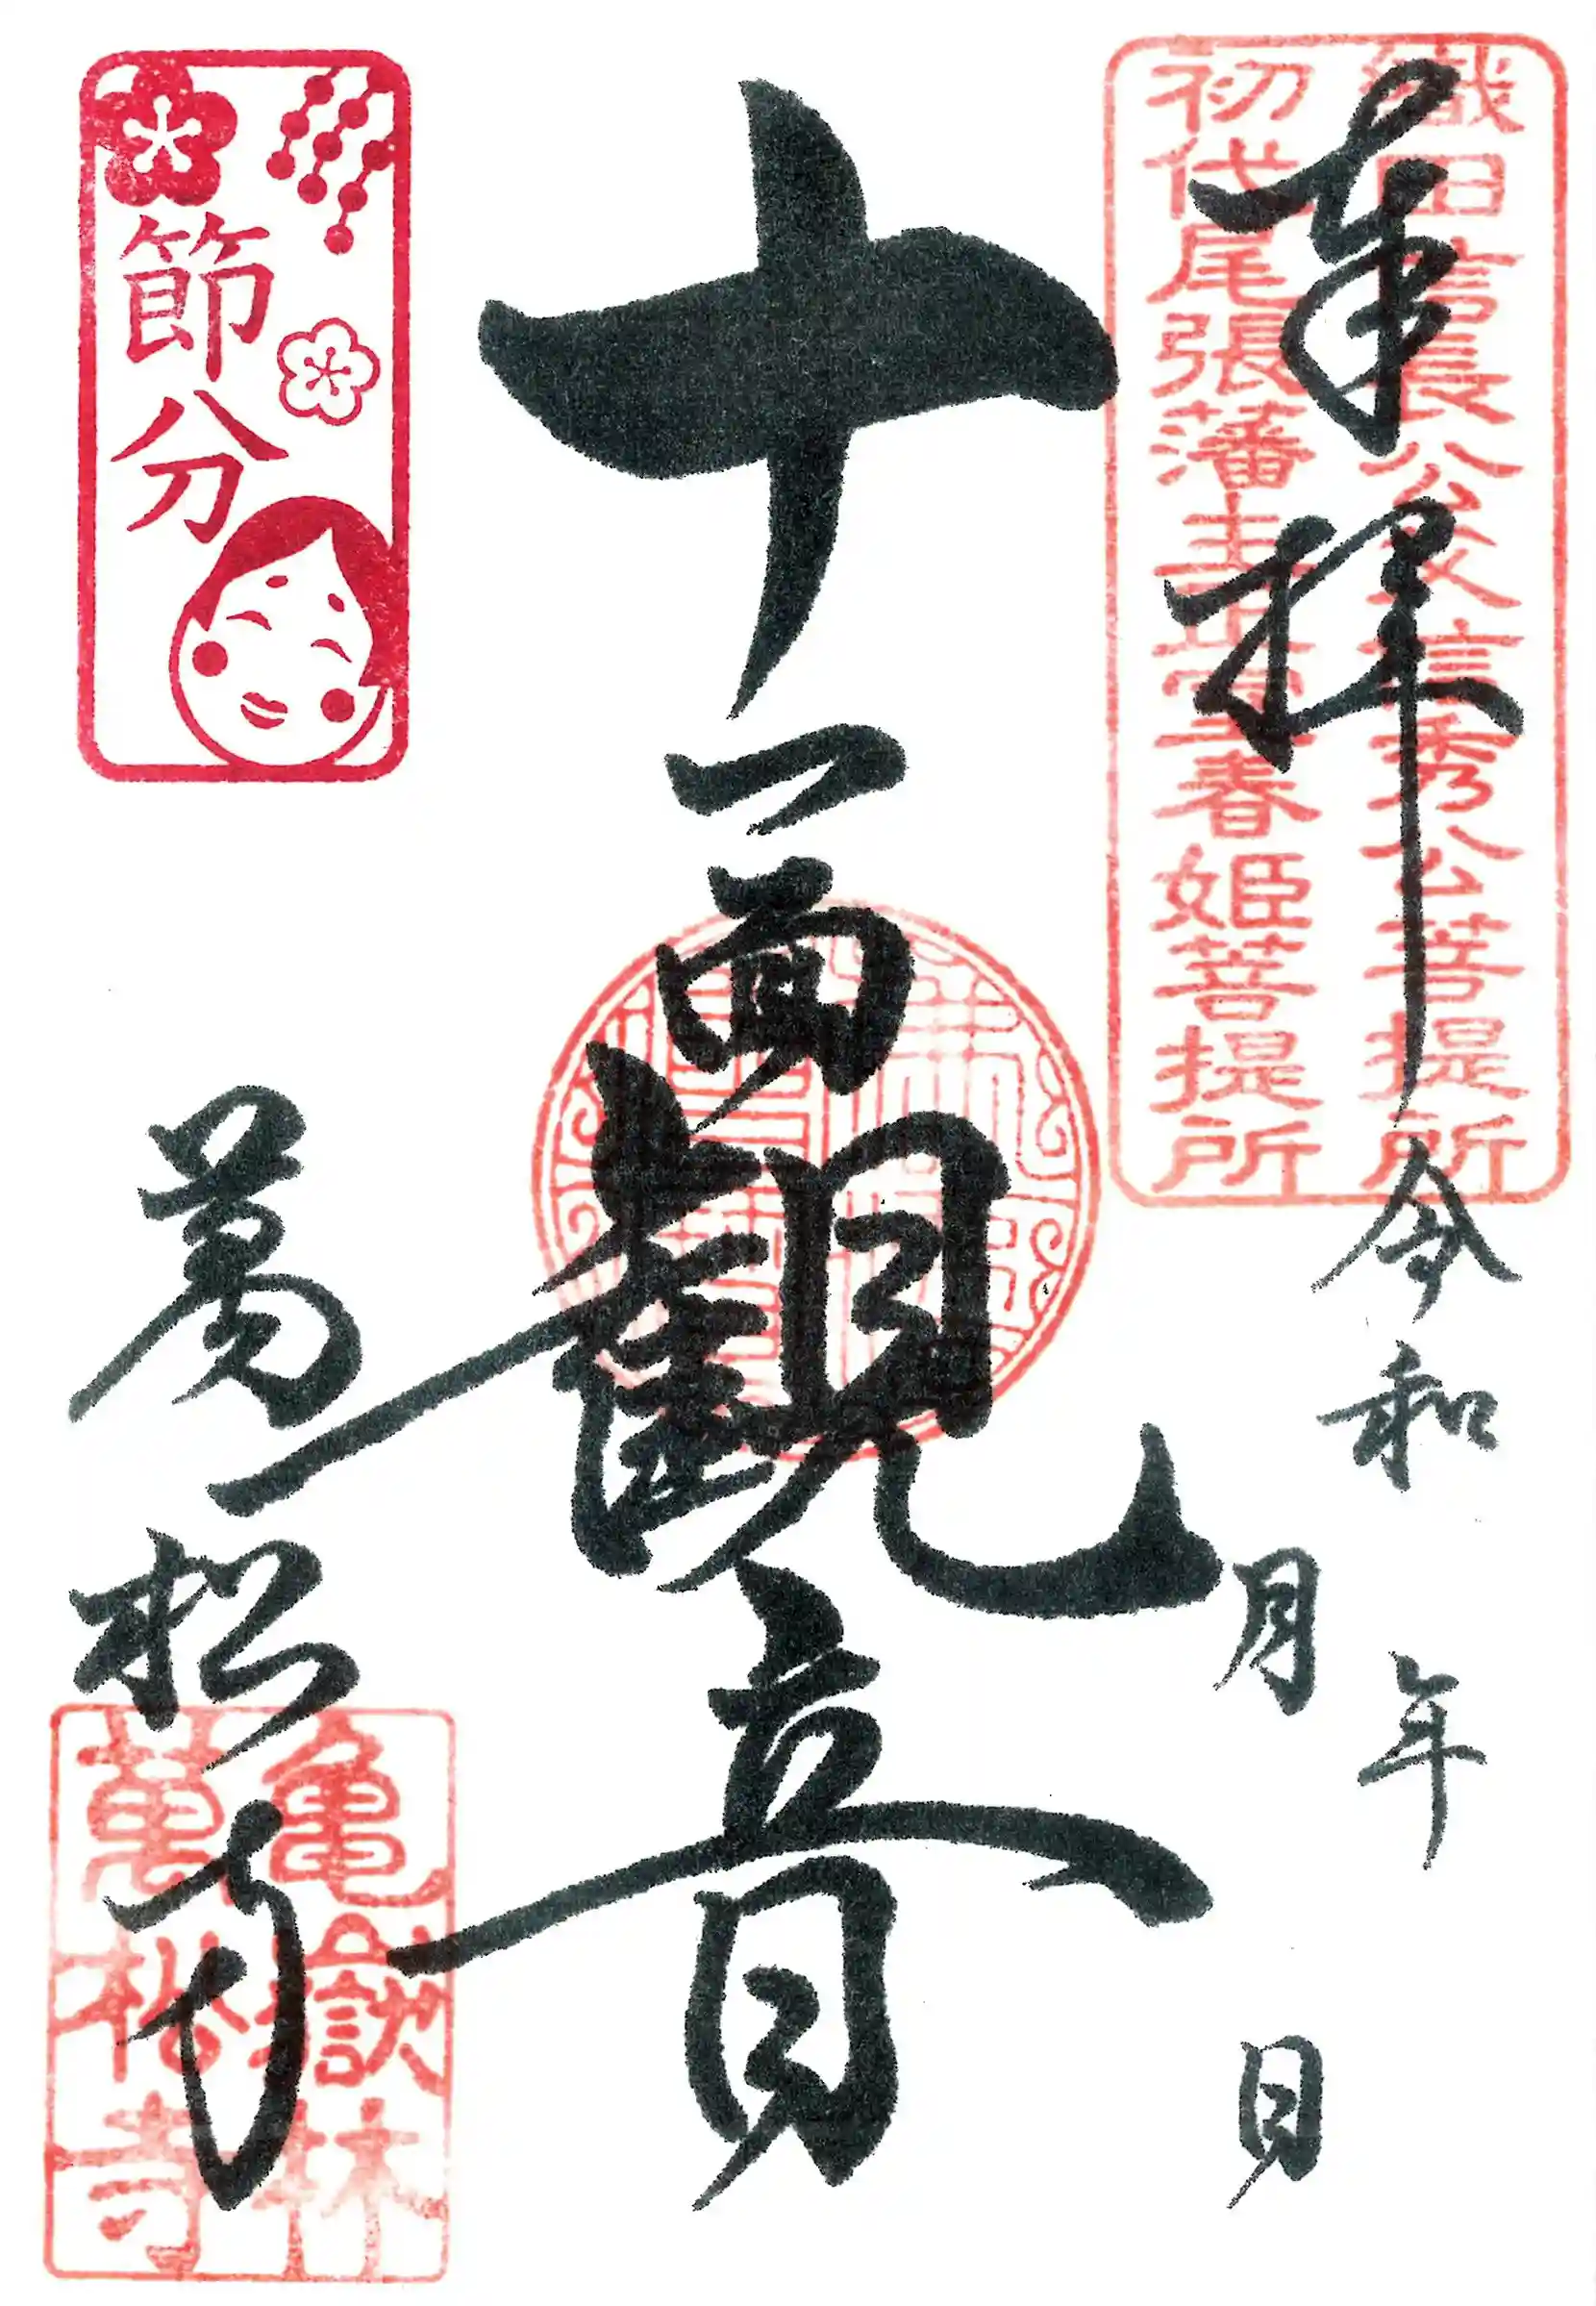 奉拝
織田信長公父信秀公菩提所
初代尾張藩主正室春姫菩提所
令和 年
月 日
十一面観音
節分
萬松寺
亀嶽林
萬松寺